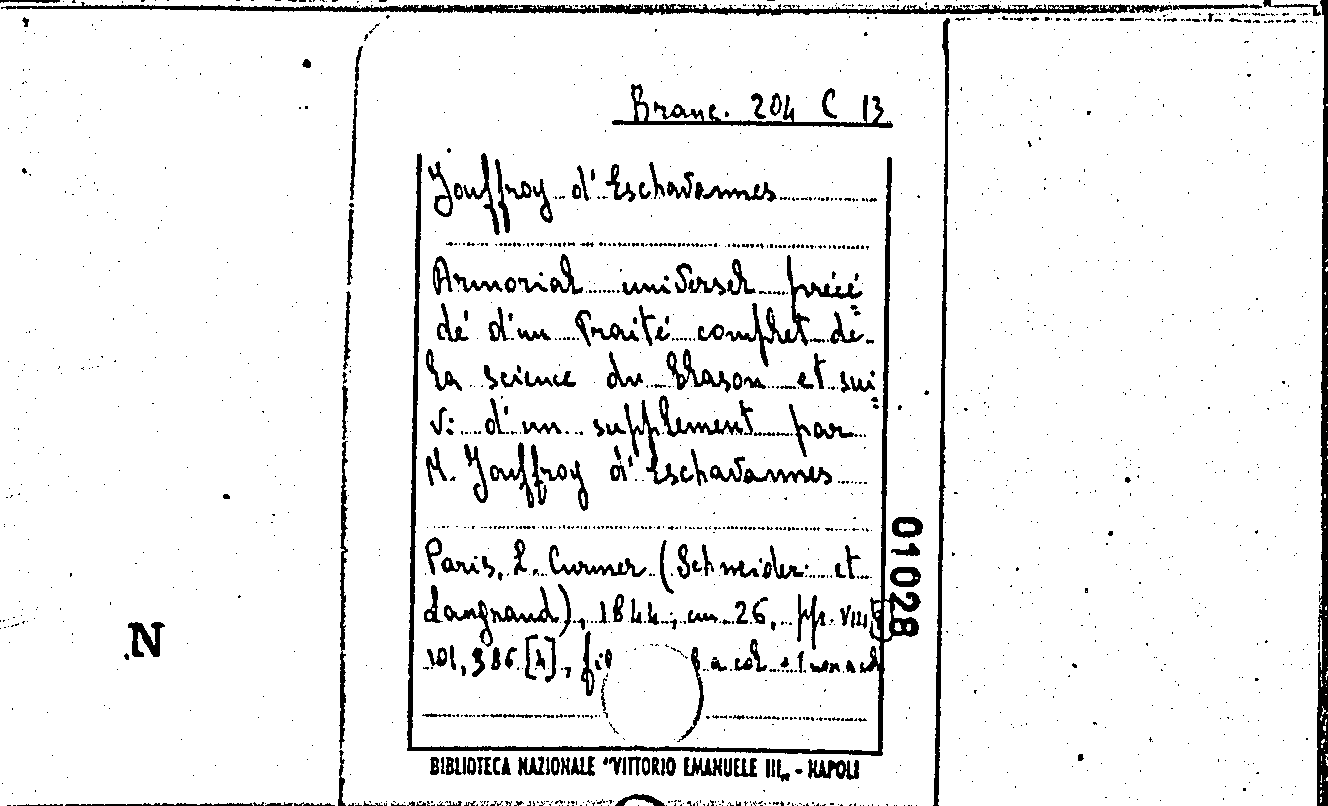 Branc. 204 C 13
Jouffroy d'Eschavannes
Armorial universel précé
dé d'un Traité complet de
la science du blason et sui
vi d'un supplement par
M. Jouffroy d'Eschavannes
Paris, L. Curmer (Schneider et
Langrand), 1844, cm 26, pp. VIII,
101, 386 [4],
01028
N
BIBLIOTECA NAZIONALE "VITTORIO EMANUELE III„ - NAPOLI